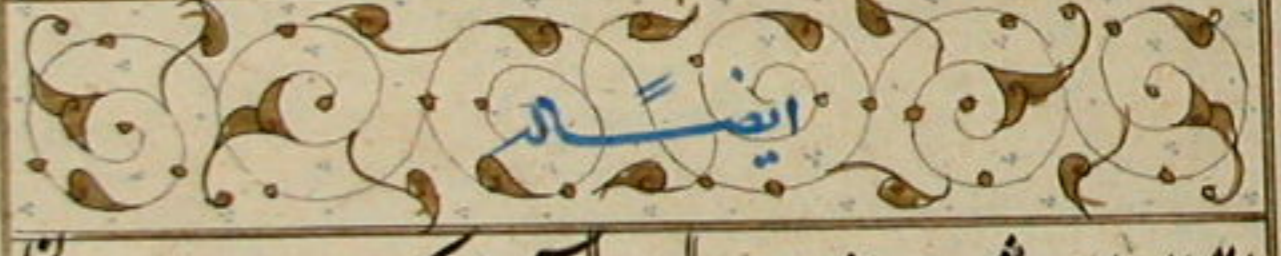 ايضاً له